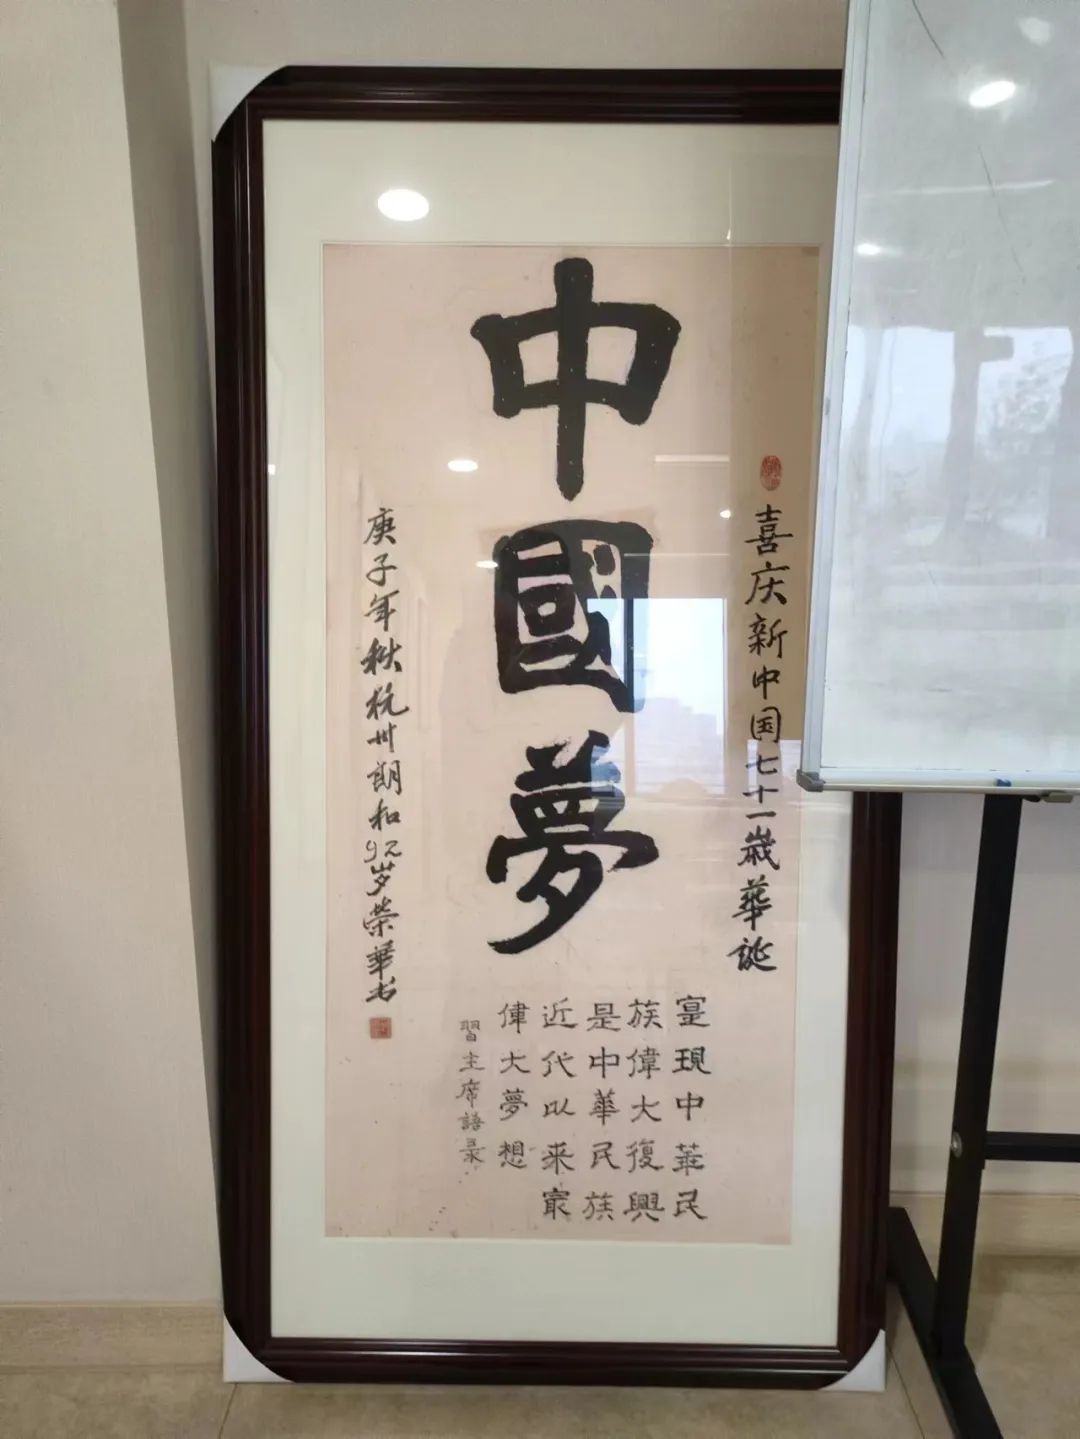 喜庆新中国七十一歳華誕
中國夢
寔現中華民
族偉大復興
是中華民族
近代以来最
偉大夢想
習主席語录
庚子年秋杭州朗和92岁荣華书